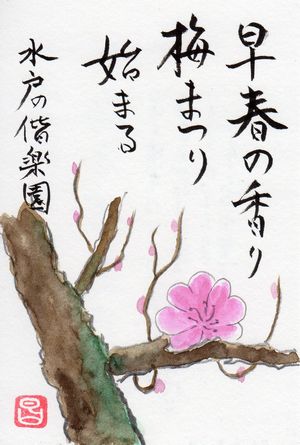 早春の香り
梅まつり
始まる
水戸の偕楽園